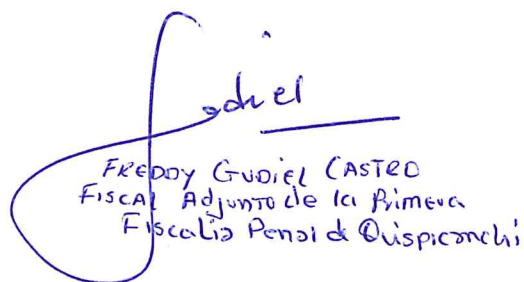 Gudiel
FREDDY GUDIEL CASTRO
FISCAL Adjunto de la Primera
Fiscalia Penal de Quispicanchi